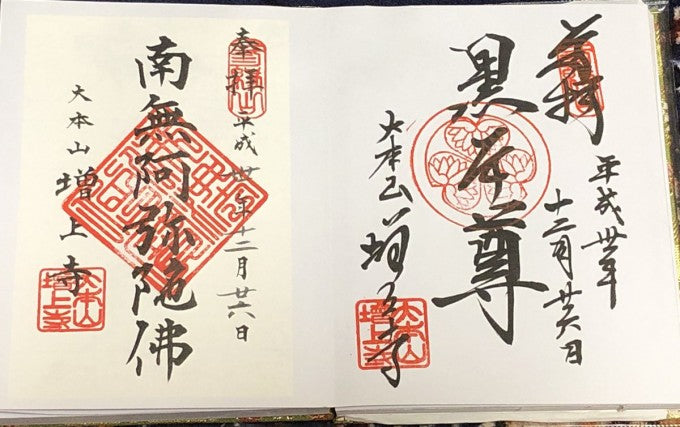 奉拝
平成卅年
十二月廿六日
黒本尊
大本山 増上寺
大本山
増上寺
奉拝
平成卅年十二月廿六日
南無阿弥陀佛
大本山 増上寺
大本山
増上寺